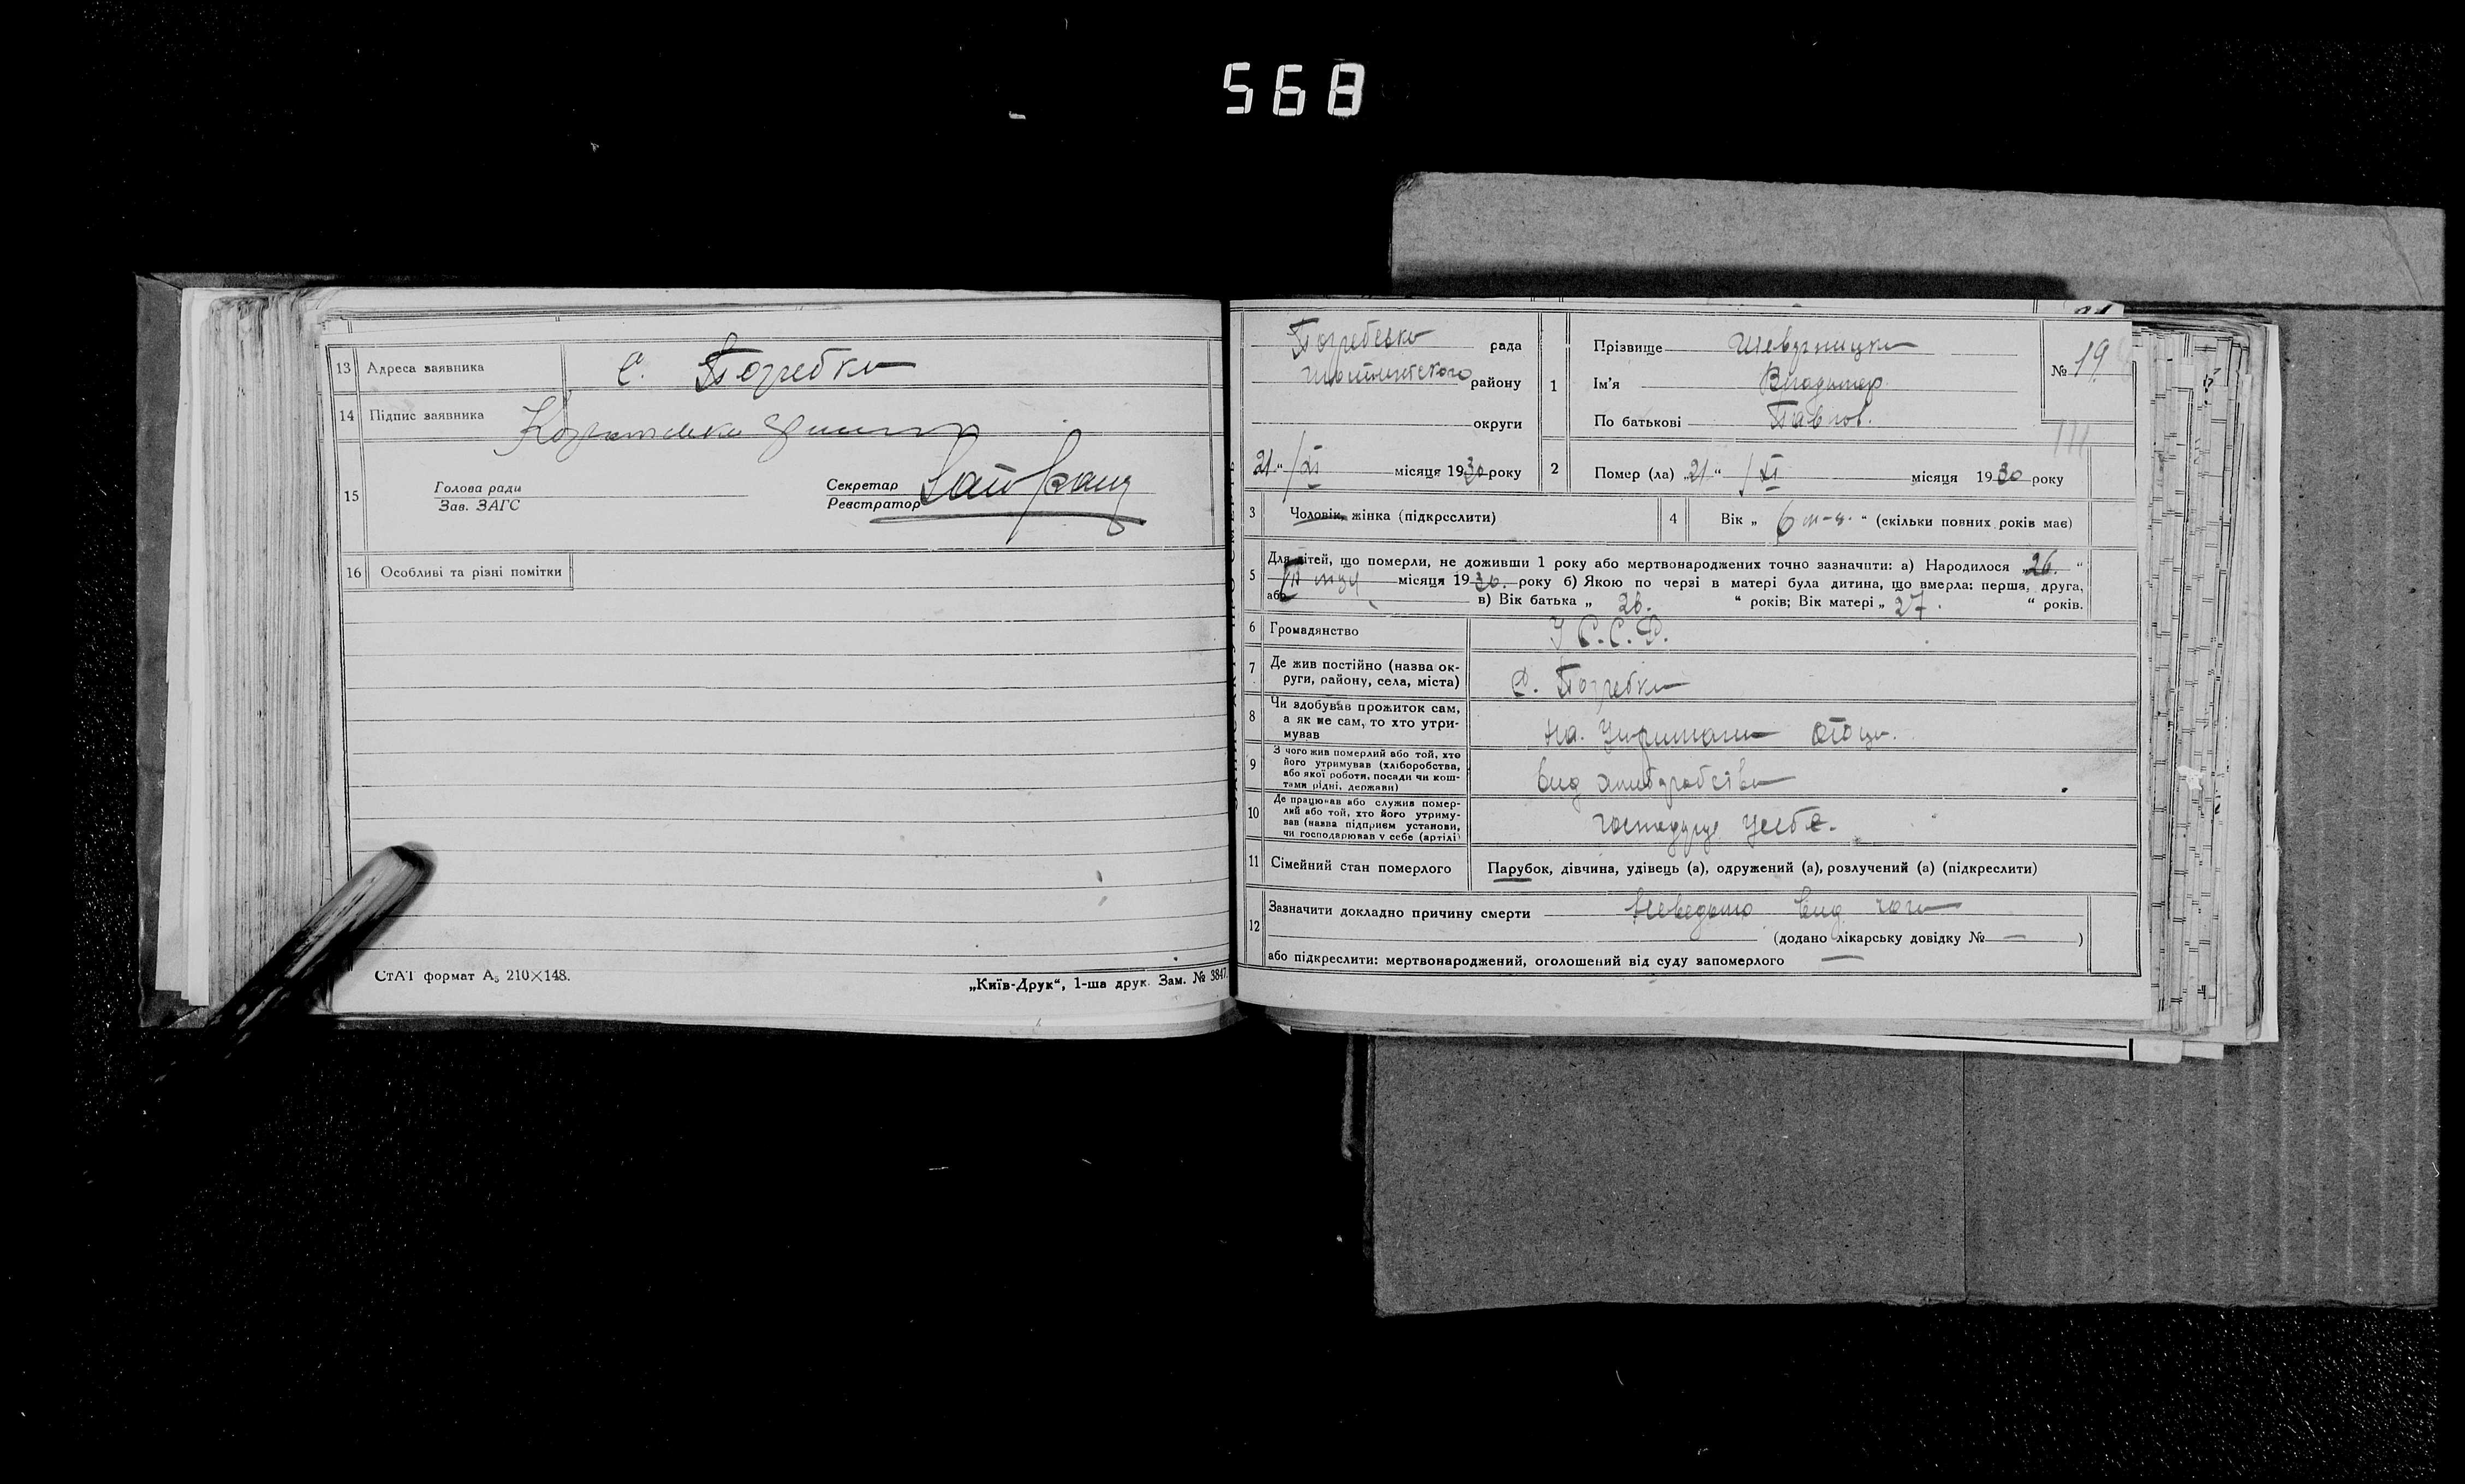 568
13 Адреса заявника
с. Погребки
14 Підпис заявника
15
Голова ради
Зав. ЗАГС
Секретар
Реєстратор
16 Особливі та різні помітки
СтАТ формат А₅ 210×148.
„Київ-Друк“, 1-ша друк. Зам. № 3847.
рада
району
округи
21 “ / XI місяця 1930 року
1
Прізвище
Ім’я Владимер
По батькові Павлов.
№ 19
2 Помер (ла) „21 “ / XI місяця 1930 року
3 Чоловік, жінка (підкреслити)
4 Вік „ 6 м-ц. “ (скільки повних років має)
5 Для дітей, що померли, не доживши 1 року або мертвонароджених точно зазначити: а) Народилося „26. “
місяця 1930. року б) Якою по черзі в матері була дитина, що вмерла: перша, друга,
або в) Вік батька „ 26. “ років; Вік матері „ 27. “ років.
6 Громадянство
У С.С.Р.
7 Де жив постійно (назва ок-
руги, району, села, міста)
с. Погребки
8 Чи здобував прожиток сам,
а як не сам, то хто утри-
мував
на. Утримани отця.
9 З чого жив померлий або той, хто
його утримував (хліборобства,
або якої роботи, посади чи кош-
тами рідні, держави)
вид хлиборобства
10 Де працював або служив помер-
лий або той, хто його утриму-
вав (назва підприєм установи,
чи господарював у себе (артілі)
господарує усебе.
11 Сімейний стан померлого
Парубок, дівчина, удівець (а), одружений (а), розлучений (а) (підкреслити)
12 Зазначити докладно причину смерти неведомо вид чого
(додано лікарську довідку № — )
або підкреслити: мертвонароджений, оголошений від суду запомерлого